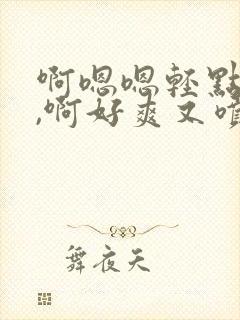 啊嗯嗯轻點
,啊好爽又嗩
舞夜天